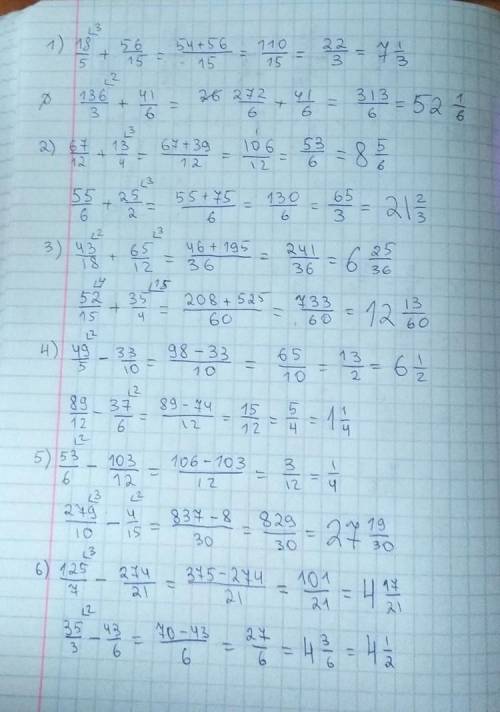 1) 18/5 ⌊3 + 56/15 = (54+56)/15 = 110/15 = 22/3 = 7 1/3
136/3 ⌊2 + 41/6 = 272/6 + 41/6 = 313/6 = 52 1/6
2) 67/12 + 13/4 ⌊3 = (67+39)/12 = 106/12 = 53/6 = 8 5/6
55/6 + 25/2 ⌊3 = (55+75)/6 = 130/6 = 65/3 = 21 2/3
3) 43/18 ⌊2 + 65/12 ⌊3 = (46+195)/36 = 241/36 = 6 25/36
52/15 ⌊4 + 35/4 ⌊15 = (208+525)/60 = 733/60 = 12 13/60
4) 49/5 ⌊2 - 33/10 = (98-33)/10 = 65/10 = 13/2 = 6 1/2
89/12 - 37/6 ⌊2 = (89-74)/12 = 15/12 = 5/4 = 1 1/4
5) 53/6 ⌊2 - 103/12 = (106-103)/12 = 3/12 = 1/4
279/10 ⌊3 - 4/15 ⌊2 = (837-8)/30 = 829/30 = 27 19/30
6) 125/7 ⌊3 - 274/21 = (375-274)/21 = 101/21 = 4 17/21
35/3 ⌊2 - 43/6 = (70-43)/6 = 27/6 = 4 3/6 = 4 1/2